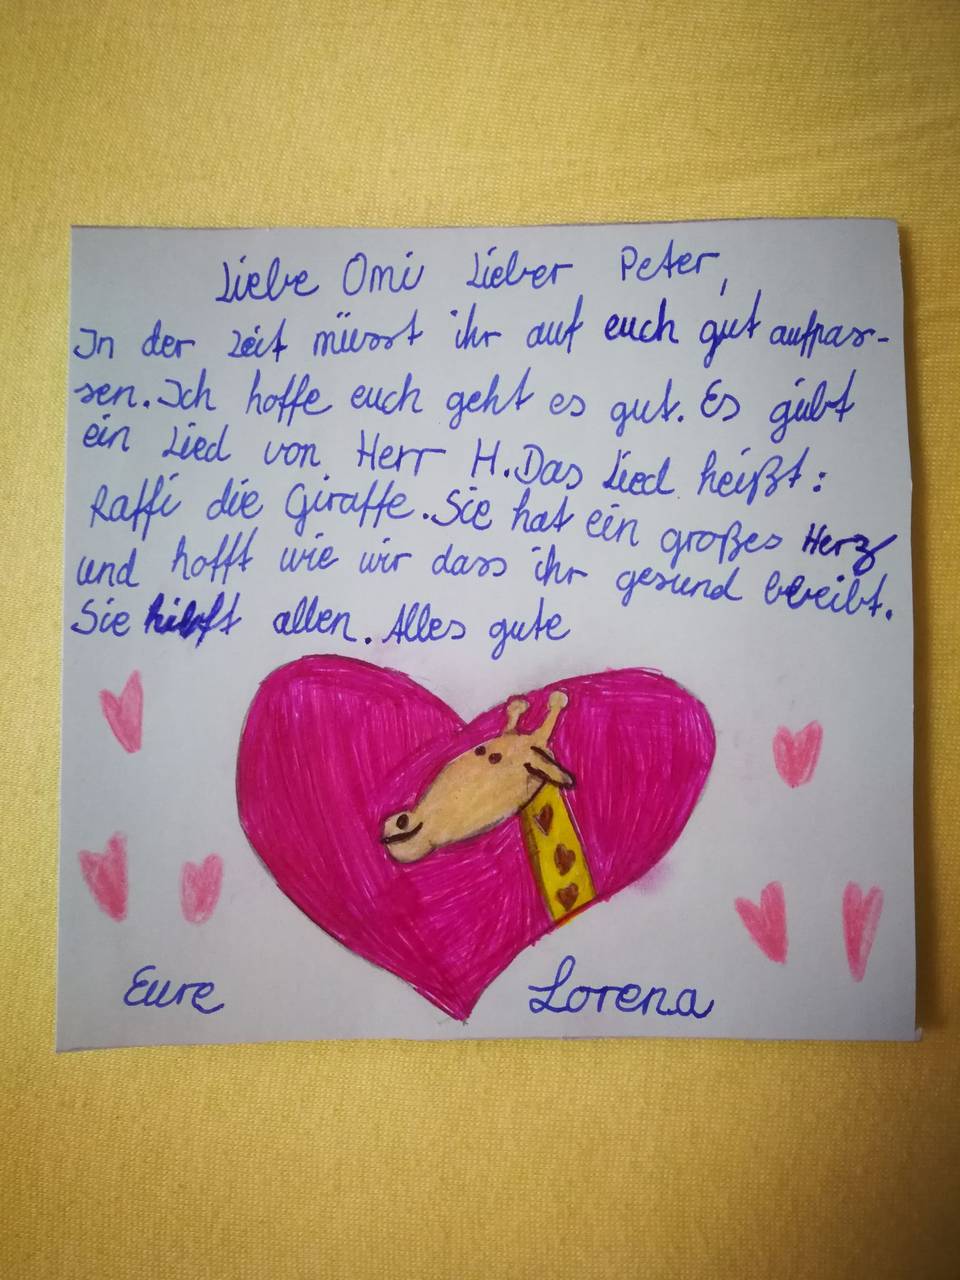 Liebe Omi Lieber Peter,
In der Zeit müsst ihr auf euch gut aufpas-
sen. Ich hoffe euch geht es gut. Es gibt
ein Lied von Herr H. Das Lied heißt:
Raffi die Giraffe. Sie hat ein großes Herz
und hofft wie wir dass ihr gesund bleibt.
Sie hilft allen. Alles gute
Eure Lorena